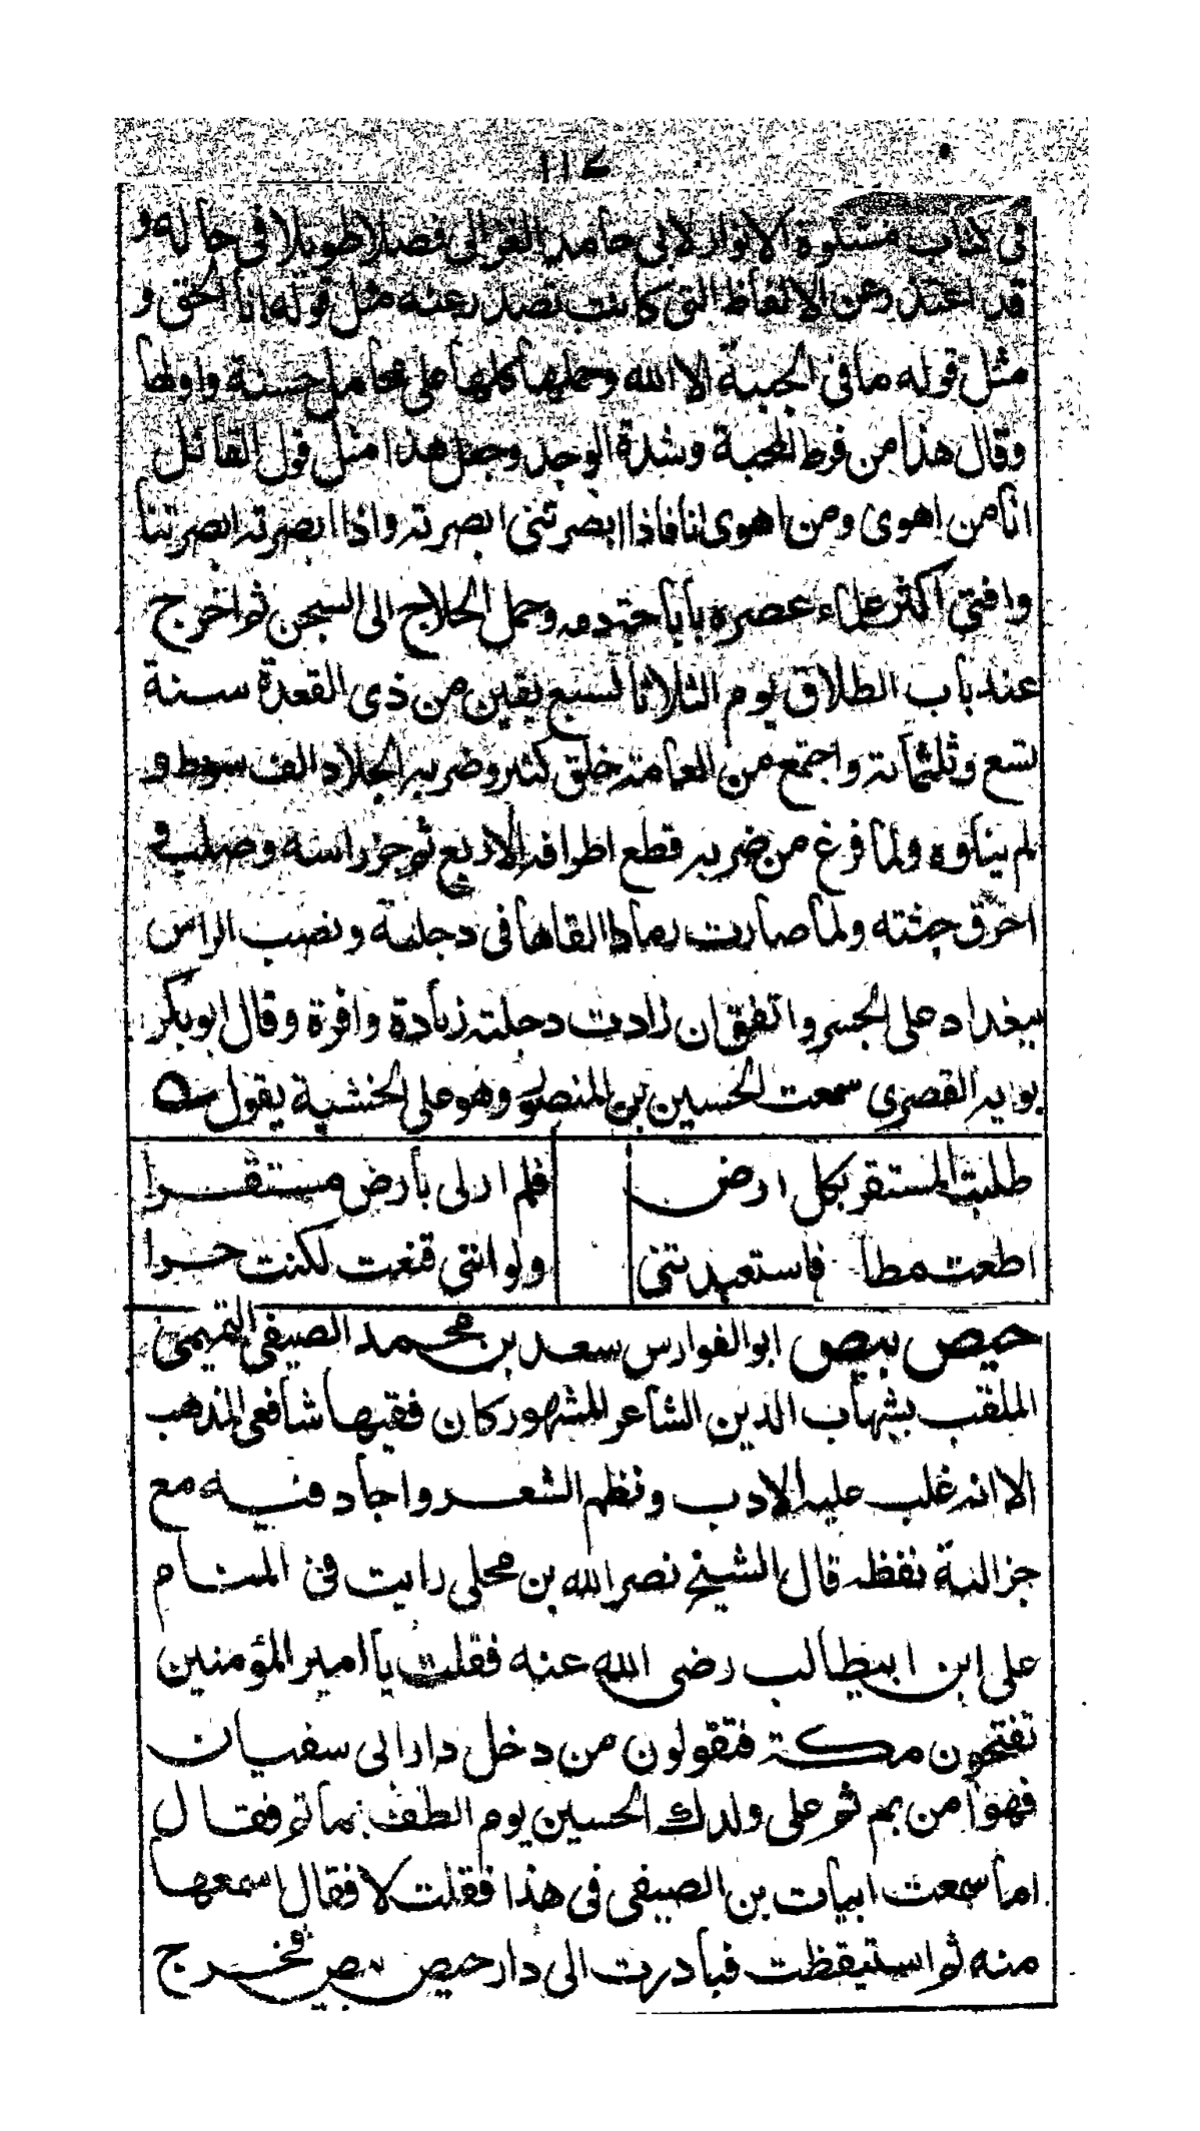 ١١٤
في كتاب مشكوة الانوار لابي حامد الغزالي فصلا طويلا في حاله و
قد اعتذر عن الالفاظ التي كانت تصدر عنه مثل قوله انا الحق و
مثل قوله ما في الجبة الا الله وحملها كلها على محامل حسنة واولها
وقال هذا من فرط المحبة وشدة الوجد وجعل هذا مثل قول القائل
انا من اهوى ومن اهوى انا فاذا ابصرتني ابصرته واذا ابصرته ابصرتنا
وافتى اكثر علماء عصره باباحة دمه وحمل الحلاج الى السجن ثم اخرج
عند باب الطلاق يوم الثلاثا لسبع بقين من ذى القعدة سنة
تسع وثلثمائة واجتمع من العامة خلق كثير وضربه الجلاد الف سوط و
لم يتاوه ولما فرغ من ضربه قطع اطرافه الاربع ثم جز راسه وصلب و
احرق جثته ولما صارت رمادا القاها في دجلة ونصب الراس
ببغداد على الجسر واتفق ان زادت دجلة زيادة وافرة وقال ابو بكر
بويه القصرى سمعت الحسين بن المنصور وهو على الخشبة يقول
طلبت المستقر بكل ارض فلم ار لى بارض مستقرا
اطعت مطا فاستعبدتنى ولو انني قنعت لكنت حرا
حيص بيص ابو الفوارس سعد بن محمد الصيفى التميمى
الملقب بشهاب الدين الشاعر المشهور كان فقيها شافعى المذهب
الا انه غلب عليه الادب ونظم الشعر واجاد فيه مع
جزالة نفظه قال الشيخ نصر الله بن محلى رايت في المنام
على ابن ابيطالب رضى الله عنه فقلت يا امير المؤمنين
تفتحون مكة فتقولون من دخل دار ابى سفيان
فهو امن بم ثم على ولدك الحسين يوم الطف بما تم فقال
اما سمعت ابيات بن الصيفى فى هذا فقلت لا فقال اسمعها
منه ثم استيقظت فبادرت الى دار حيص بيص فخرج